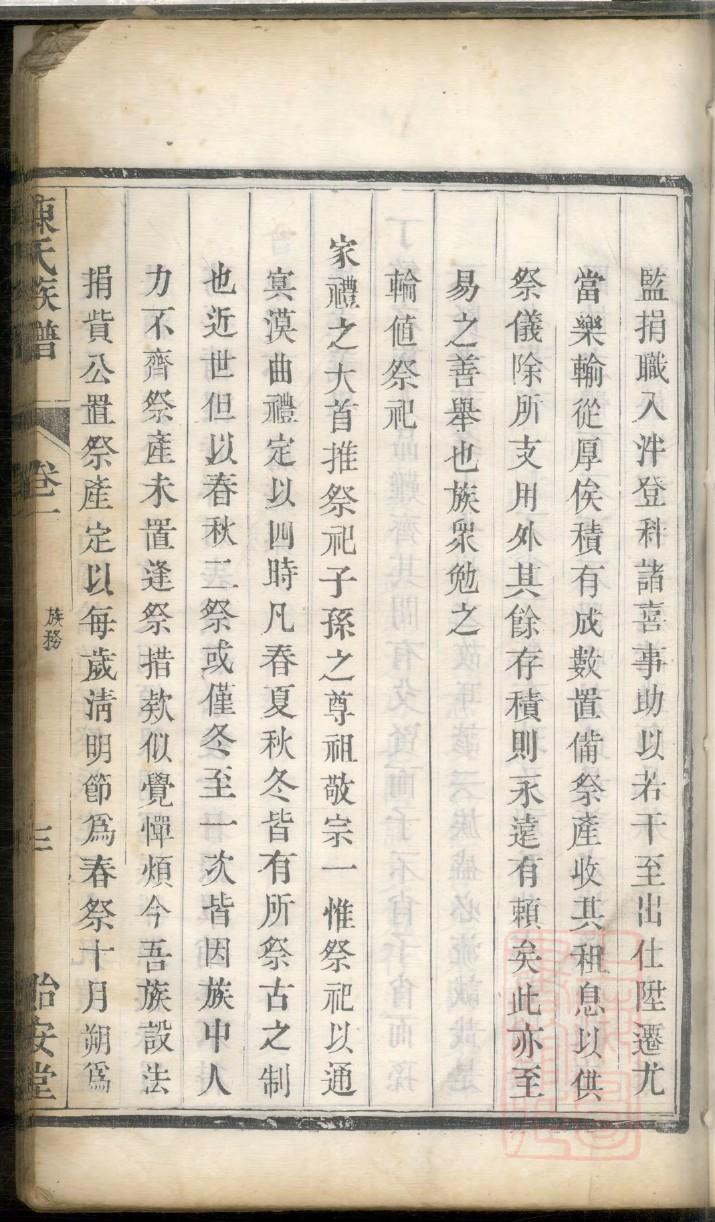 監捐職入泮登科諸喜事助以若干至出仕陞遷尤
當樂輸從厚俟積有成數置備祭產收其租息以供
祭儀除所支用外其餘存積則永遠有賴矣此亦至
易之善舉也族衆勉之
輪值祭祀
家禮之大首推祭祀子孫之尊祖敬宗一惟祭祀以通
㝠漠曲禮定以四時凡春夏秋冬皆有所祭古之制
也近世但以春秋二祭或僅冬至一次皆因族中人
力不齊祭產未置逢祭措欵似覺憚煩今吾族設法
捐貲公置祭產定以每歲淸明節爲春祭十月朔爲
陳氏族譜
卷一
族務
三
怡安堂